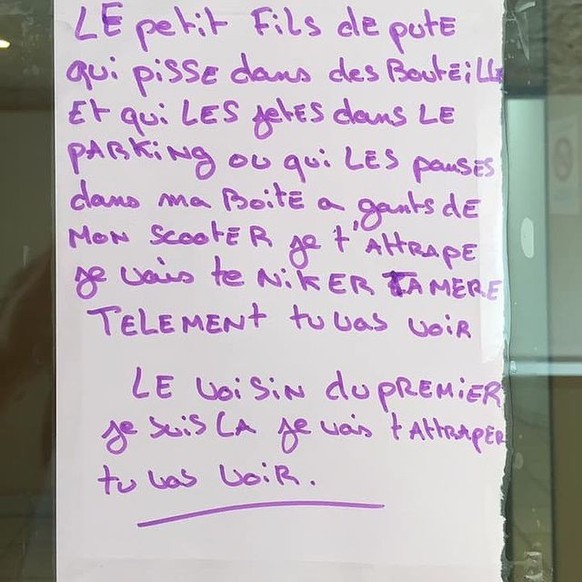 LE petit Fils de pute
qui pisse dans des Bouteille
Et qui LES jetes dans LE
PARKING ou qui LES pauses
dans ma Boite a gants de
MON SCOOTER je t'ATTRAPE
je vais te NiKER TA MERE
TELEMENT tu vas voir
LE voisin du PREMIER
je suis LA je vais t ATTRAPER
tu vas voir.